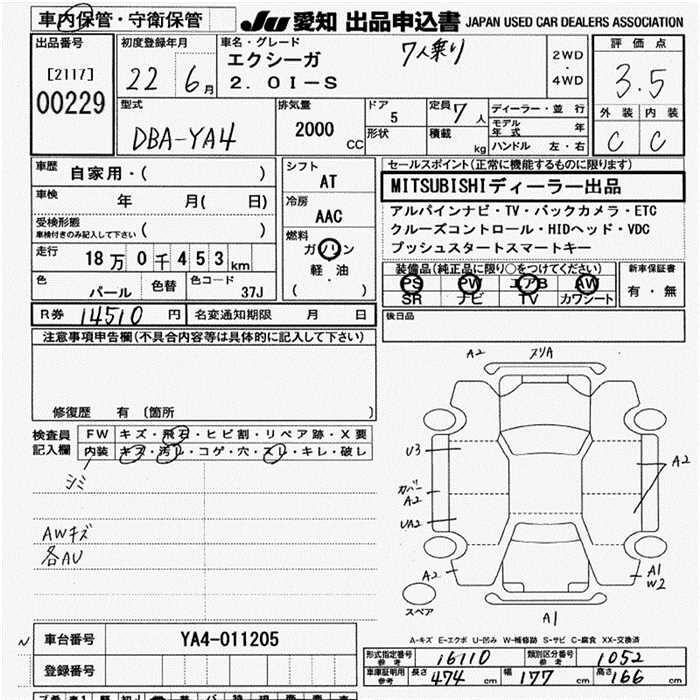 車内保管・守衛保管
JU 愛知 出品申込書 JAPAN USED CAR DEALERS ASSOCIATION
出品番号
[2117]
00229
初度登録年月
22 6月
車名・グレード
エクシーガ
2.0I-S
7人乗り
2WD
・
4WD
評価点
3.5
外装 内装
C C
型式
DBA-YA4
排気量
2000
CC
ドア
5
形状
定員 7人
積載 kg
ディーラー・並行
モデル年式 年
ハンドル 左・右
車歴 自家用・( )
車検 年 月( 日)
受検形態
車検付きのみ記入して下さい ( )
走行 18万0千453km
色 パール 色替 色コード 37J
シフト
AT
冷房
AAC
燃料
ガソリン
軽・油
( )
セールスポイント(正常に機能するものに限ります)
MITSUBISHIディーラー出品
アルパインナビ・TV・バックカメラ・ETC
クルーズコントロール・HIDヘッド・VDC
プッシュスタートスマートキー
装備品(純正品に限り○をつけてください)
PS PW エアB AW
SR ナビ TV カワシート
新車保証書
有・無
R券 14510 円 名変通知期限 月 日
後日品
注意事項申告欄(不具合内容等は具体的に記入して下さい)
修復歴 有 〔箇所 〕
検査員
記入欄
FW キズ・飛石・ヒビ割・リペア跡・X要
内装 キズ・汚レ・コゲ・穴・スレ・キレ・破レ
シミ
AWキズ
各AU
A2 スリA
U3
カバー
A2
UA2
A2
A2
A1
W2
A1
スペア
A-キズ E-エクボ U-凹み W-補修跡 S-サビ C-腐食 XX-交換済
車台番号 YA4-011205
登録番号
形式指定番号
参考
16110
類別区分番号
参考
1052
車庫証明用
参考
長さ 474cm 幅 177cm 高さ 166cm